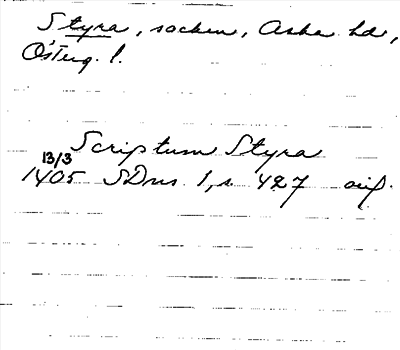 Styra, socken, Aska hd,
Österg. l.
Scriptum Styra
13/3
1405 SDns 1, s 427 orig.